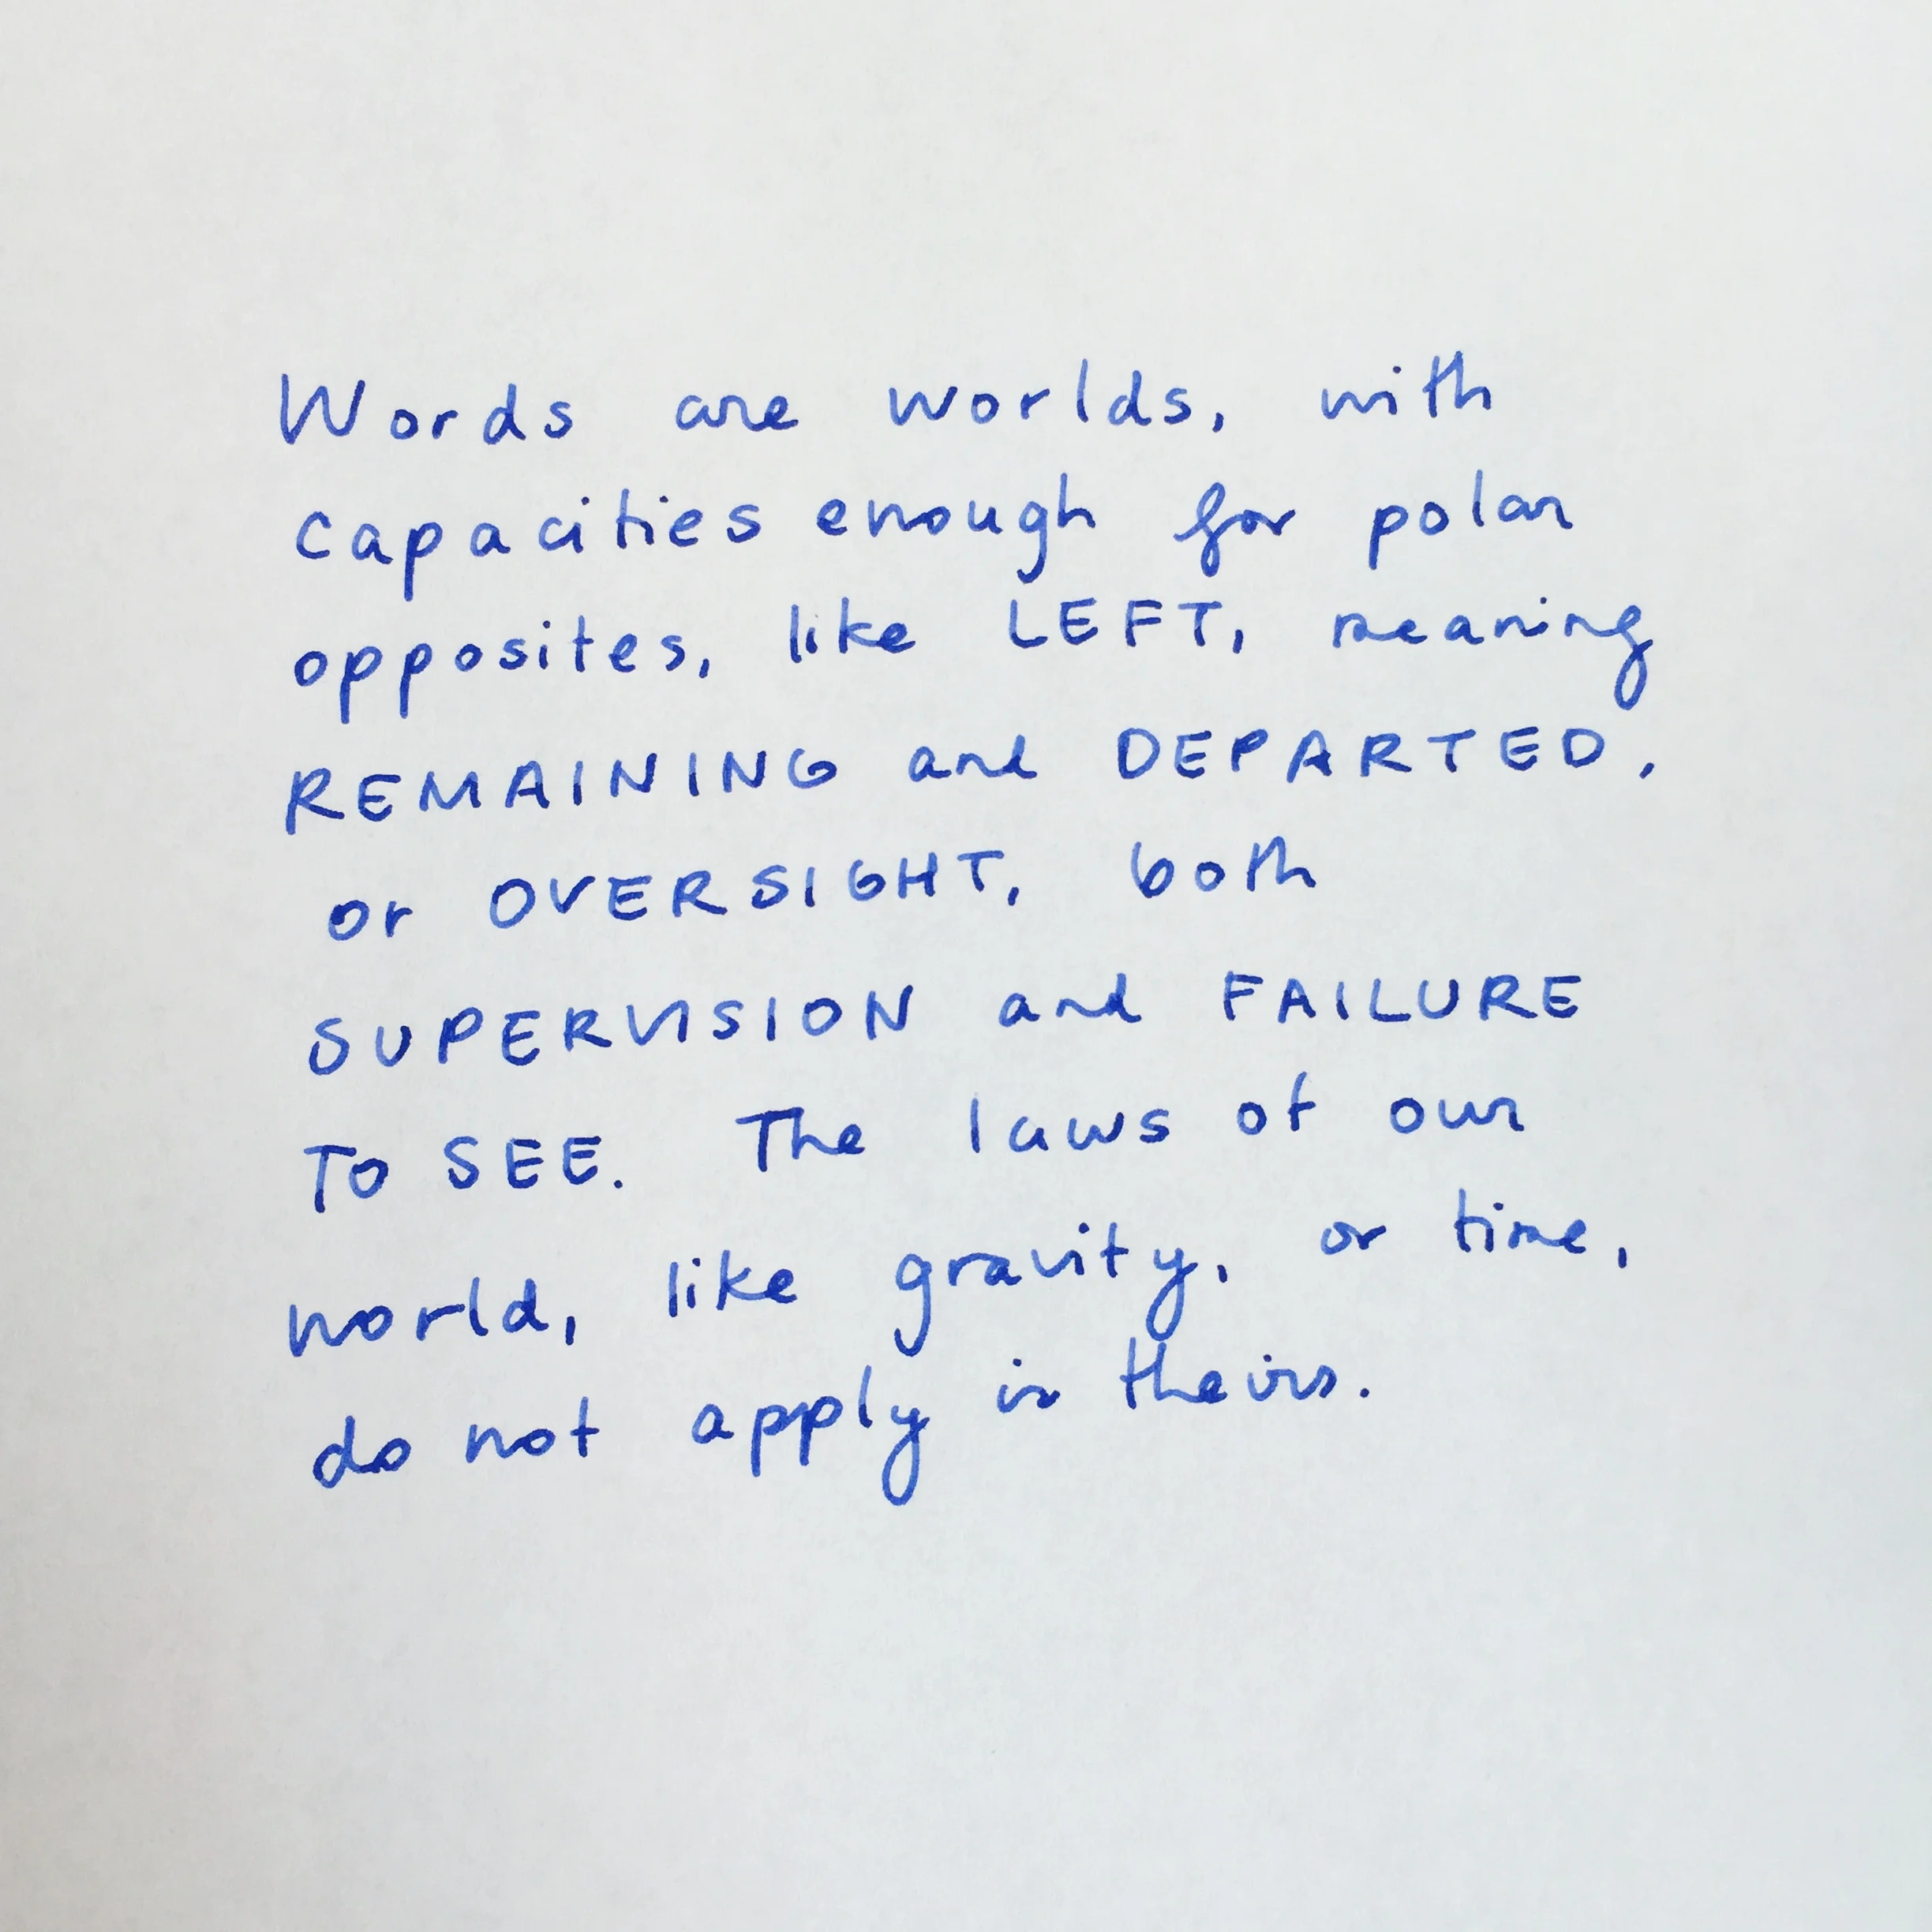 Words are worlds, with
capacities enough for polar
opposites, like LEFT, meaning
REMAINING and DEPARTED,
or OVERSIGHT, both
SUPERVISION and FAILURE
TO SEE. The laws of our
world, like gravity, or time,
do not apply in theirs.